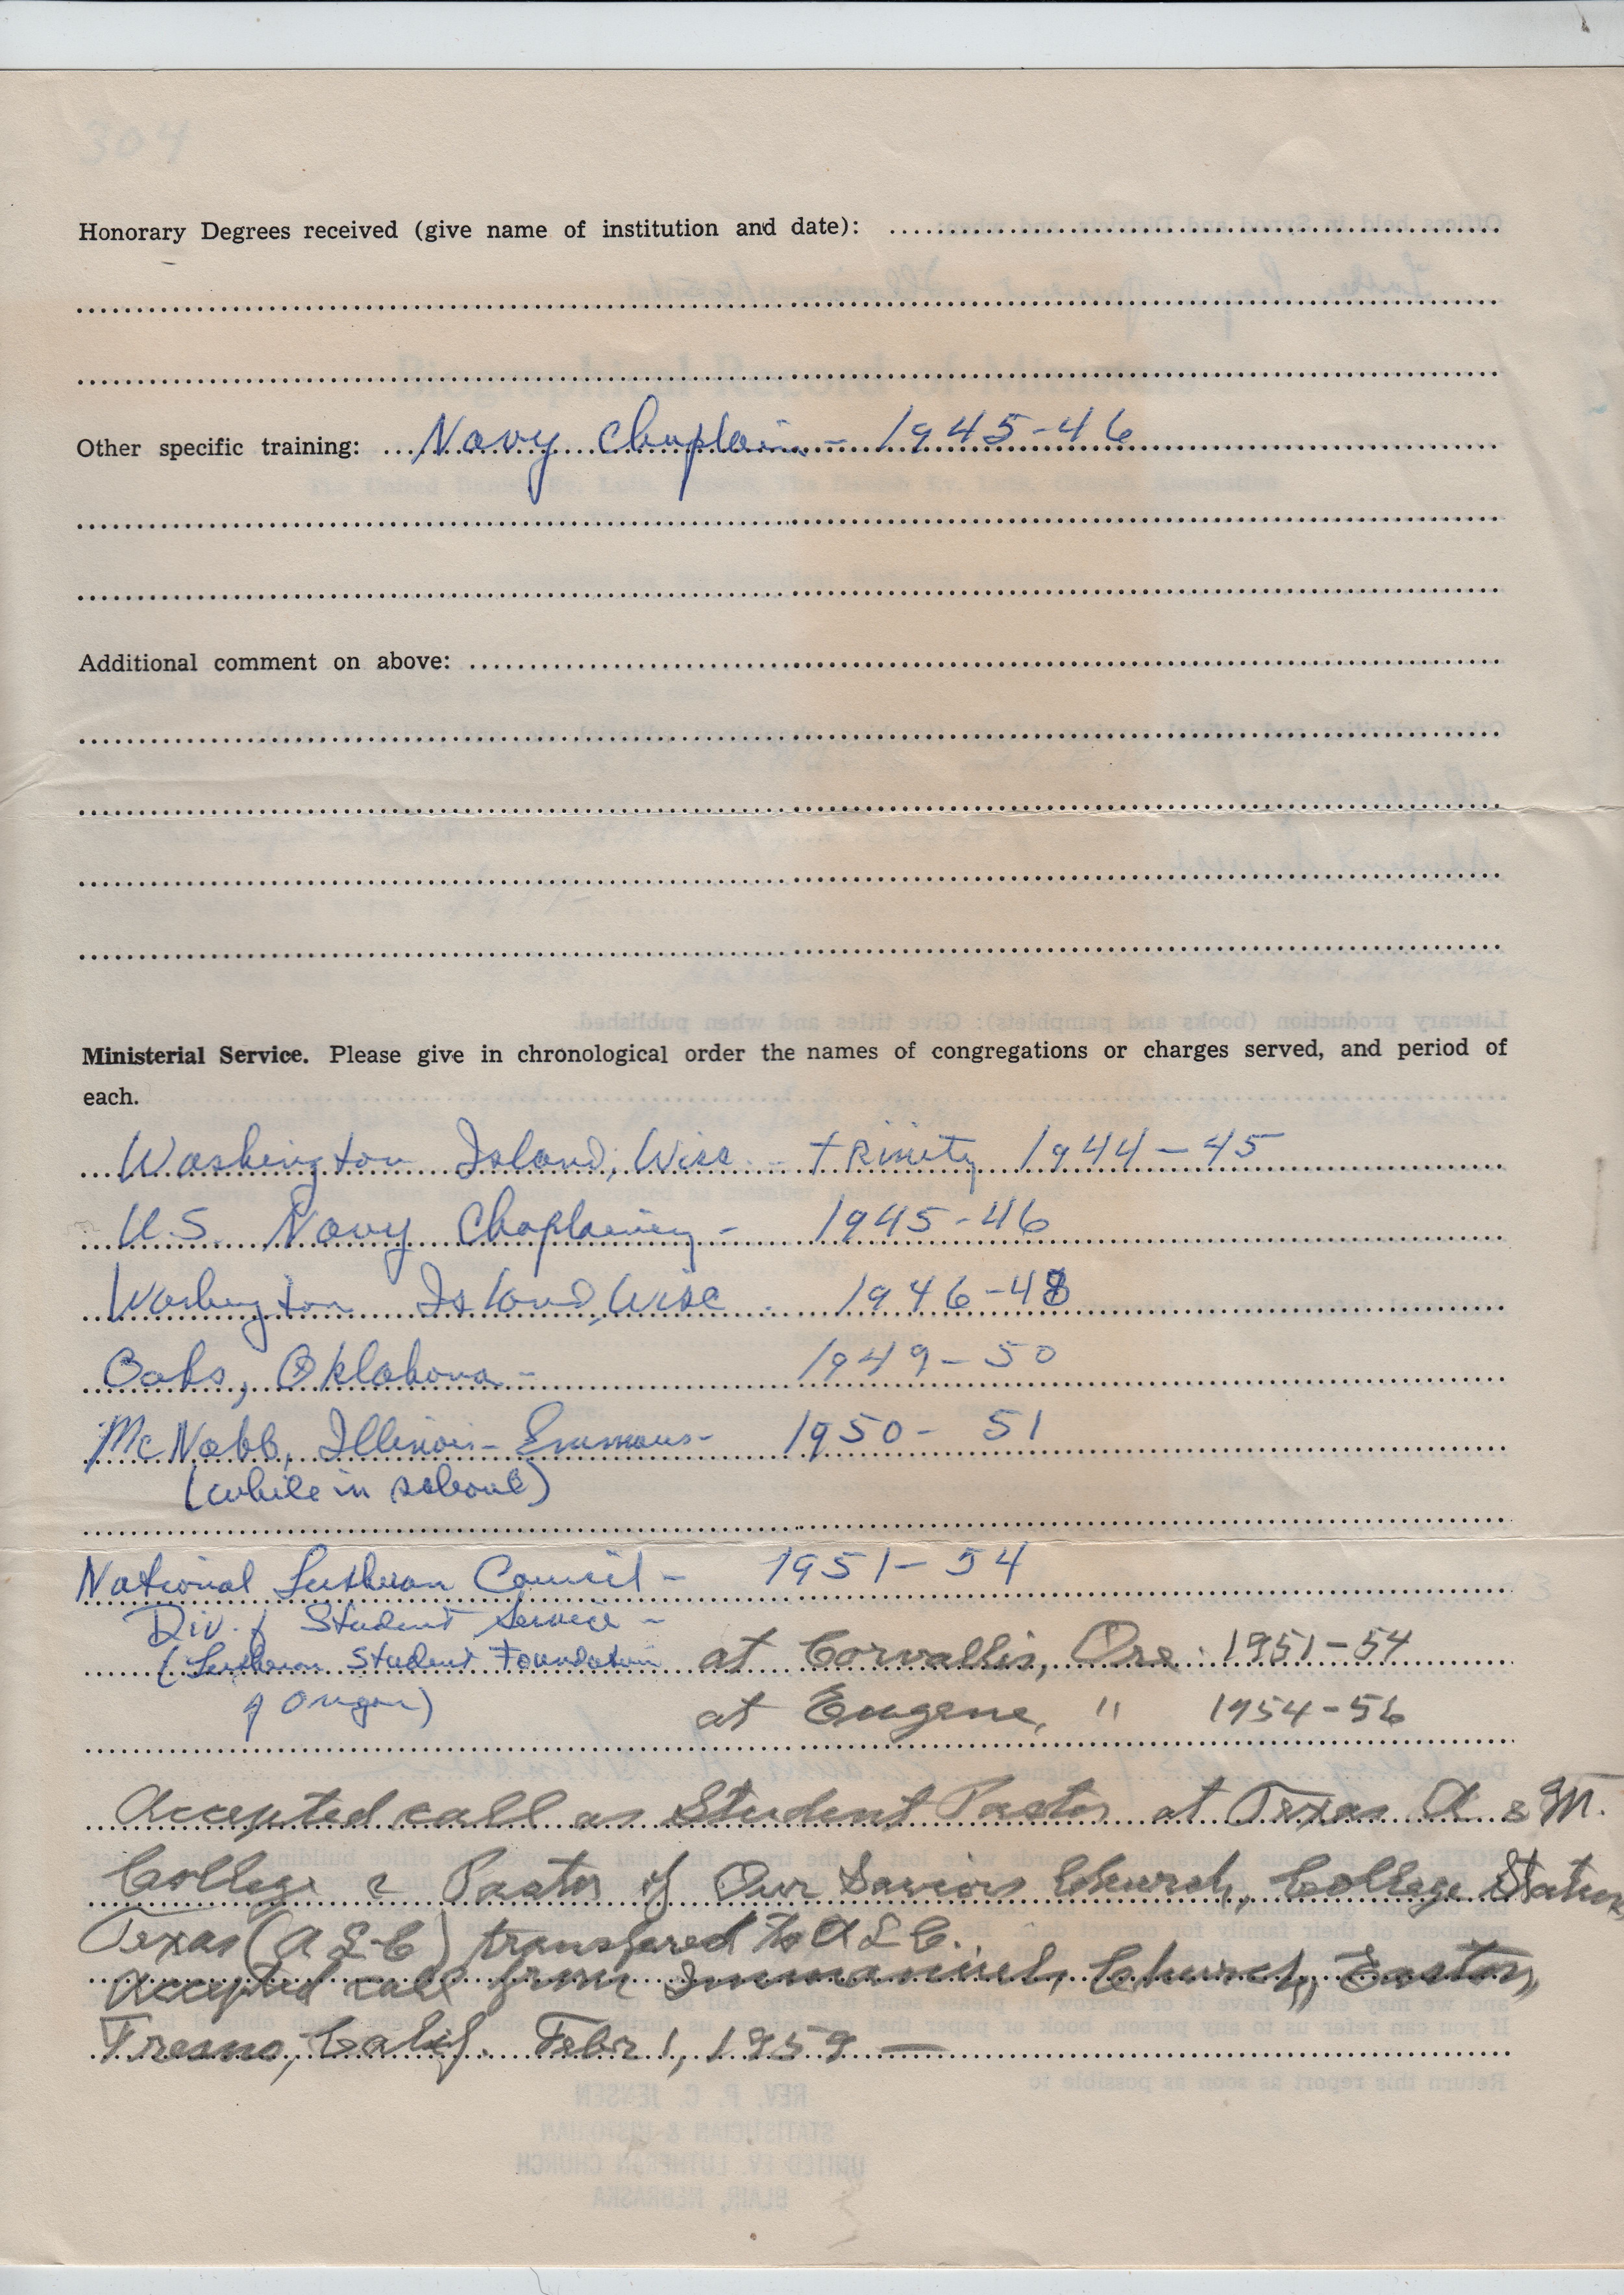 304
Honorary Degrees received (give name of institution and date):
Other specific training: Navy Chaplain - 1945-46
Additional comment on above:
Ministerial Service. Please give in chronological order the names of congregations or charges served, and period of
each.
Washington Island, Wisc - Trinity 1944-45
U.S. Navy Chaplaincy - 1945-46
Washington Island, Wisc 1946-48
Oaks, Oklahoma - 1949-50
McNabb, Illinois - Emmaus - 1950-51
(while in school)
National Lutheran Council - 1951-54
Div. of Student Service -
(Lutheran Student Foundation at Corvallis, Ore. 1951-54
of Oregon) at Eugene, " 1954-56
Accepted call as Student Pastor at Texas A & M.
College & Pastor of Our Saviors Church, College Station
Texas (A L C) transfered to A L C.
Accepted call from Immanuel Church, Easton,
Fresno, Calif. Febr 1, 1959 —
REV. P. C. JENSEN
STATISTICIAN & HISTORIAN
UNITED EV. LUTHERAN CHURCH
BLAIR, NEBRASKA